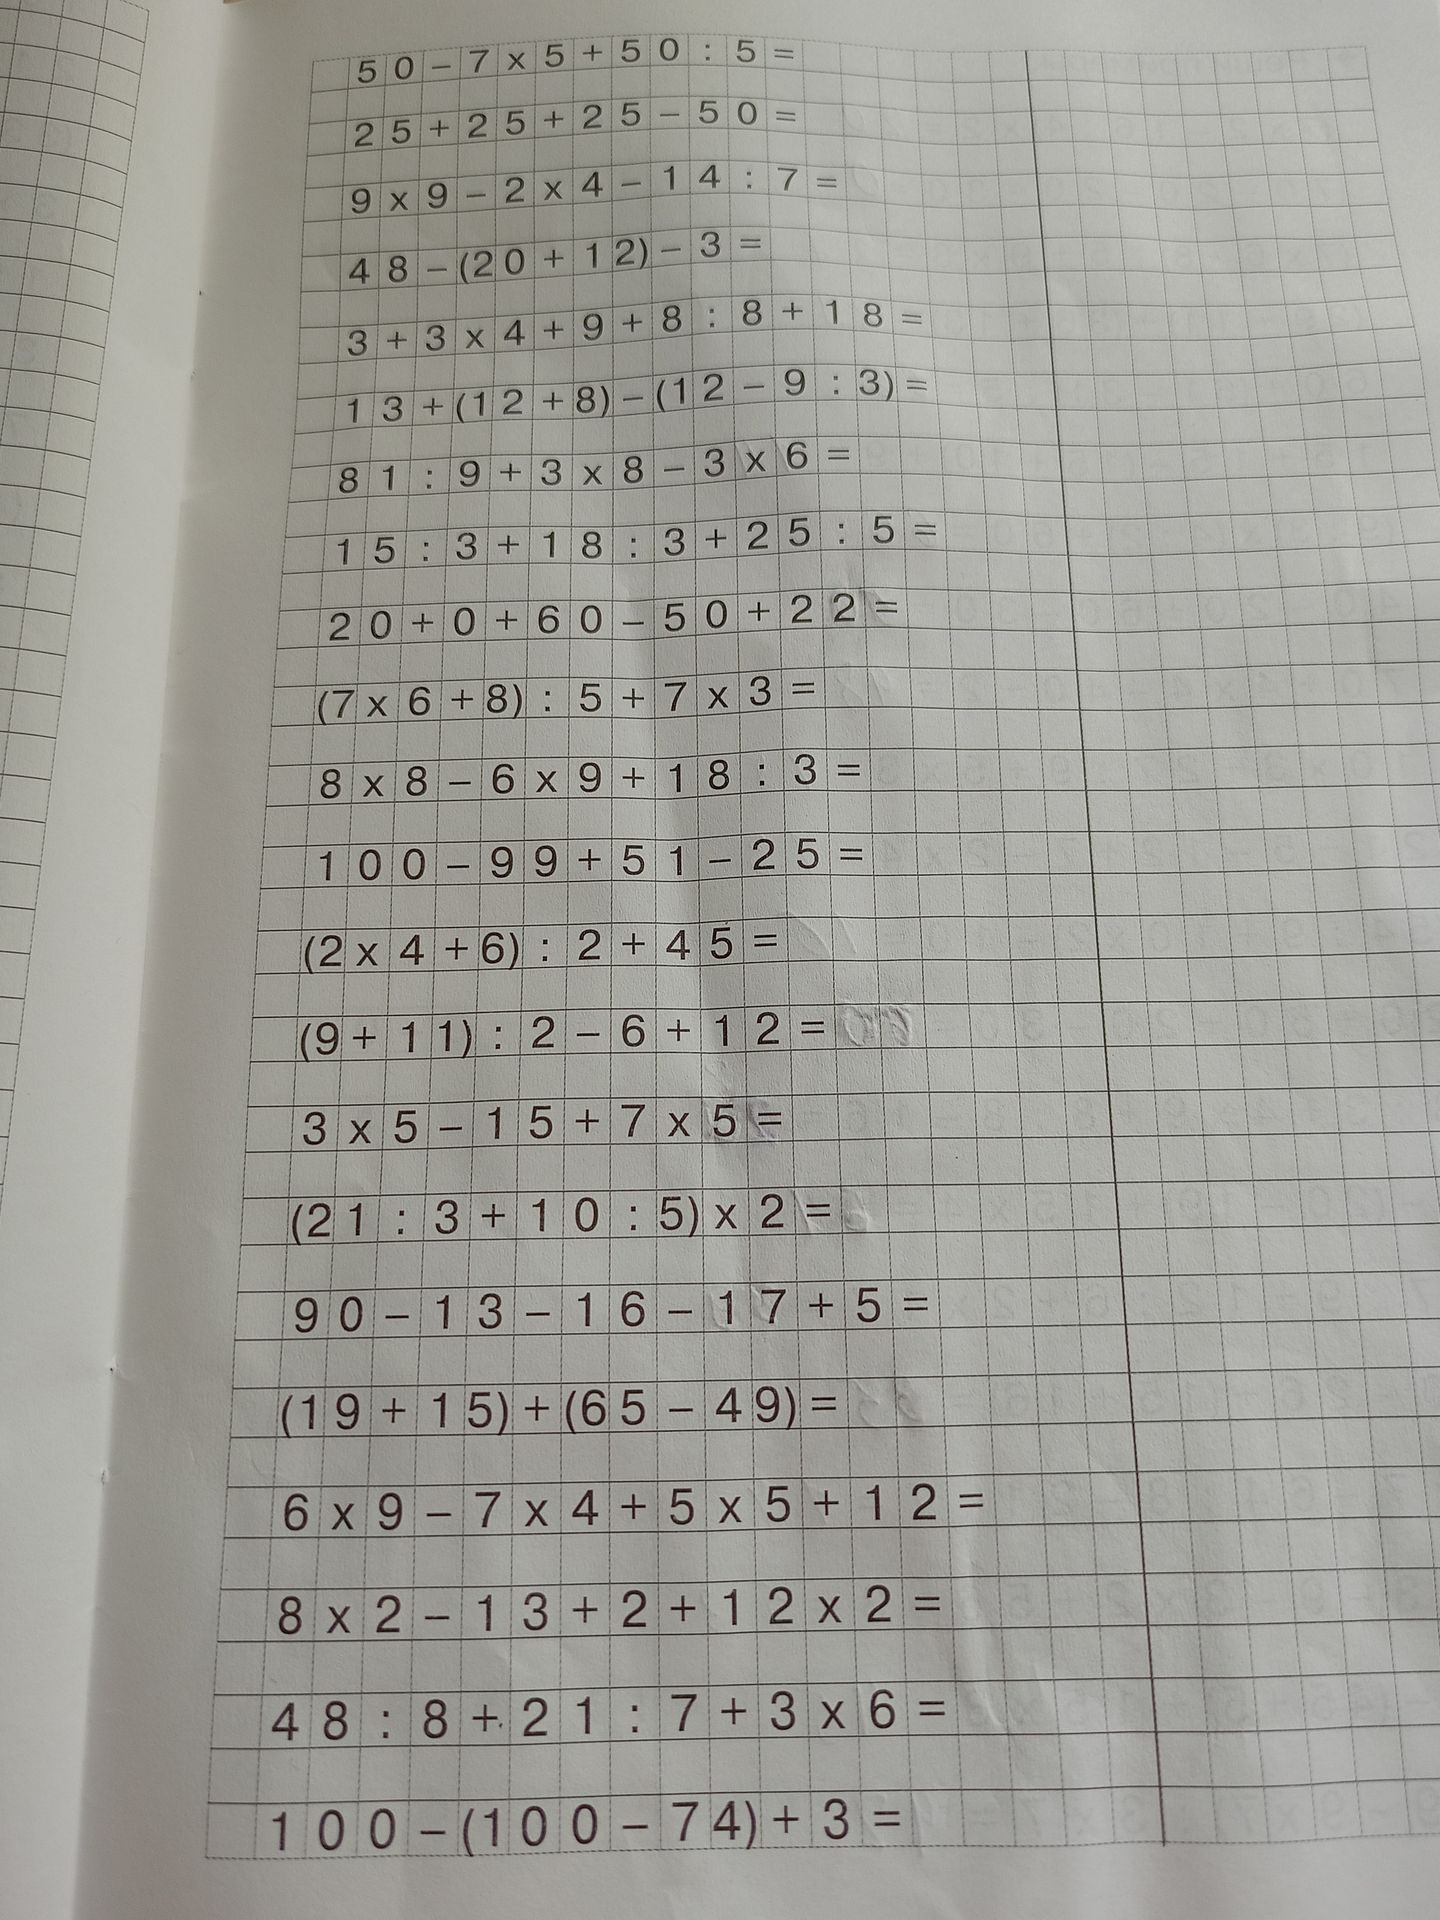 50-7x5+50:5=
25+25+25-50=
9x9-2x4-14:7=
48-(20+12)-3=
3+3x4+9+8:8+18=
13+(12+8)-(12-9:3)=
81:9+3x8-3x6=
15:3+18:3+25:5=
20+0+60-50+22=
(7x6+8):5+7x3=
8x8-6x9+18:3=
100-99+51-25=
(2x4+6):2+45=
(9+11):2-6+12=
3x5-15+7x5=
(21:3+10:5)x2=
90-13-16-17+5=
(19+15)+(65-49)=
6x9-7x4+5x5+12=
8x2-13+2+12x2=
48:8+21:7+3x6=
100-(100-74)+3=